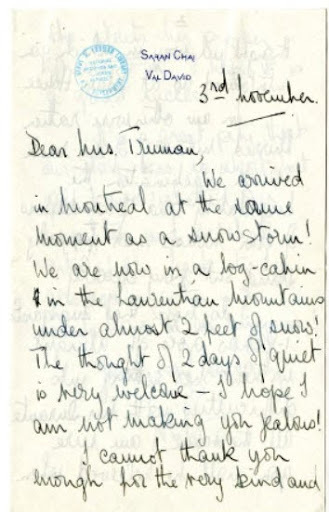 SARAN CHAI
VAL DAVID
3rd November.
Dear Mrs. Truman,
We arrived
in Montreal at the same
moment as a snowstorm!
We are now in a log-cabin
in the Laurentian Mountains
under almost 2 feet of snow!
The thought of 2 days of quiet
is very welcome – I hope I
am not making you jealous!
I cannot thank you
enough for the very kind and